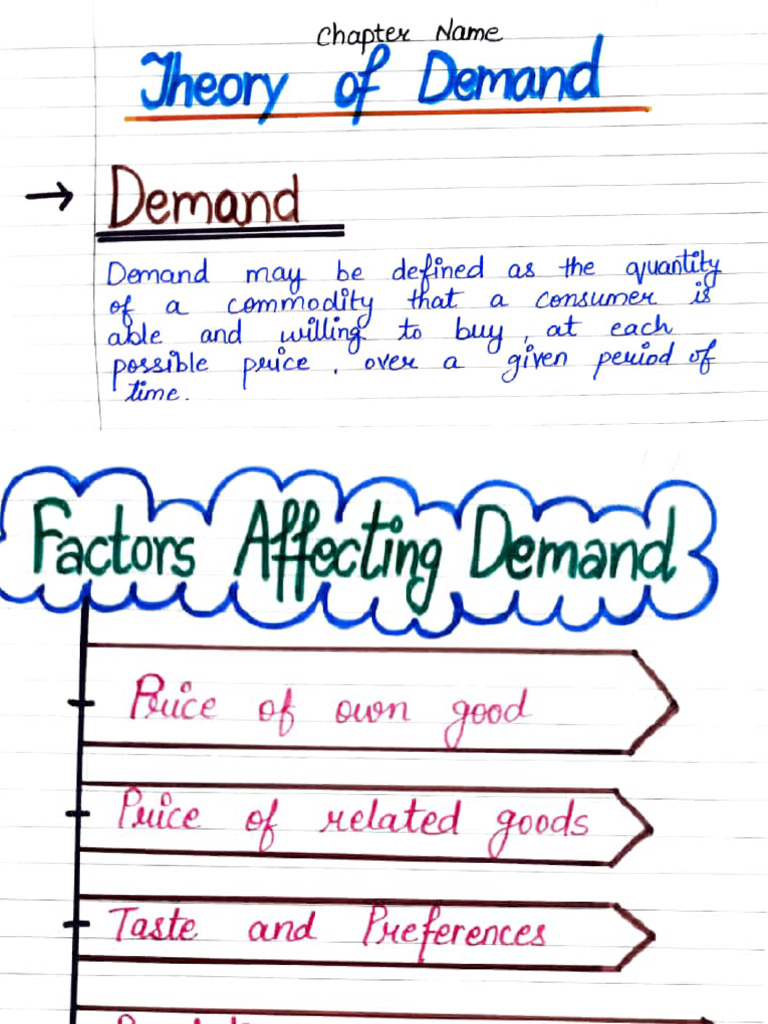 Chapter Name
Theory of Demand
→ Demand
Demand may be defined as the quantity
of a commodity that a consumer is
able and willing to buy, at each
possible price, over a given period of
time.
Factors Affecting Demand
Price of own good
Price of related goods
Taste and Preferences